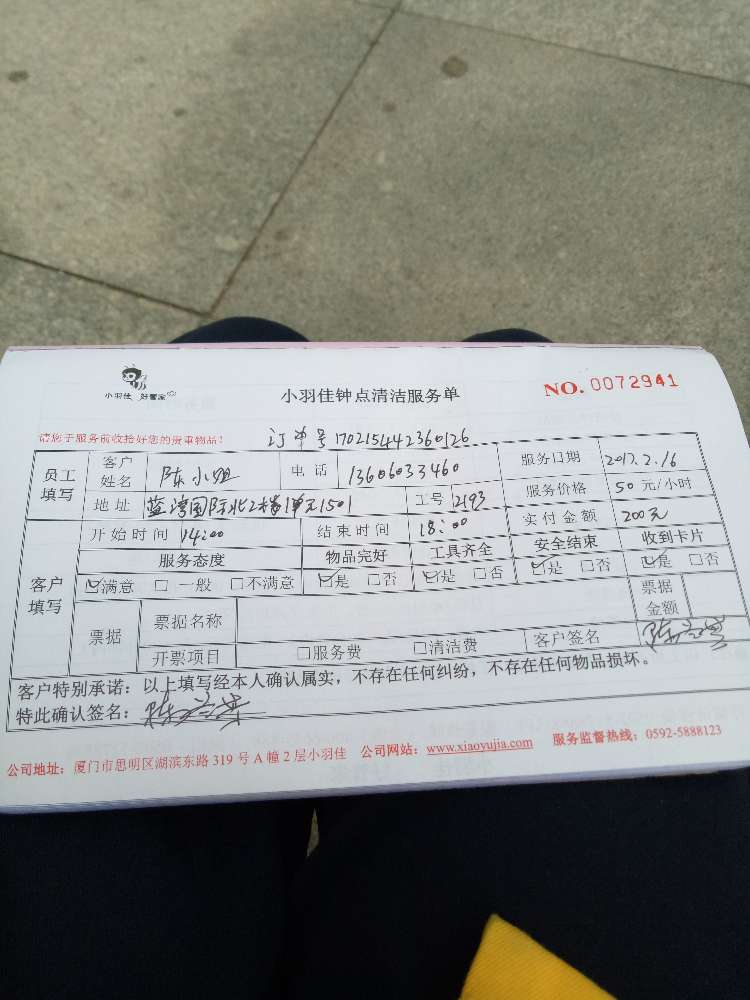 小羽佳 好管家
小羽佳钟点清洁服务单
NO. 0072941
请您于服务前收拾好您的贵重物品！
订单号170215442360126
员工填写 客户姓名 陈小姐 电话 13606033460 服务日期 2017.2.16
地址 蓝湾国际北2楼1单元1501 工号 2193 服务价格 50元/小时
开始时间 14:00 结束时间 18:00 实付金额 200元
客户填写 服务态度 物品完好 工具齐全 安全结束 收到卡片
☑满意 □一般 □不满意 ☑是 □否 ☑是 □否 ☑是 □否 ☑是 □否
票据 票据名称 票据金额
开票项目 □服务费 □清洁费 客户签名
客户特别承诺：以上填写经本人确认属实，不存在任何纠纷，不存在任何物品损坏。
特此确认签名：
公司地址：厦门市思明区湖滨东路 319 号 A 幢 2 层小羽佳 公司网站：www.xiaoyujia.com 服务监督热线：0592-5888123